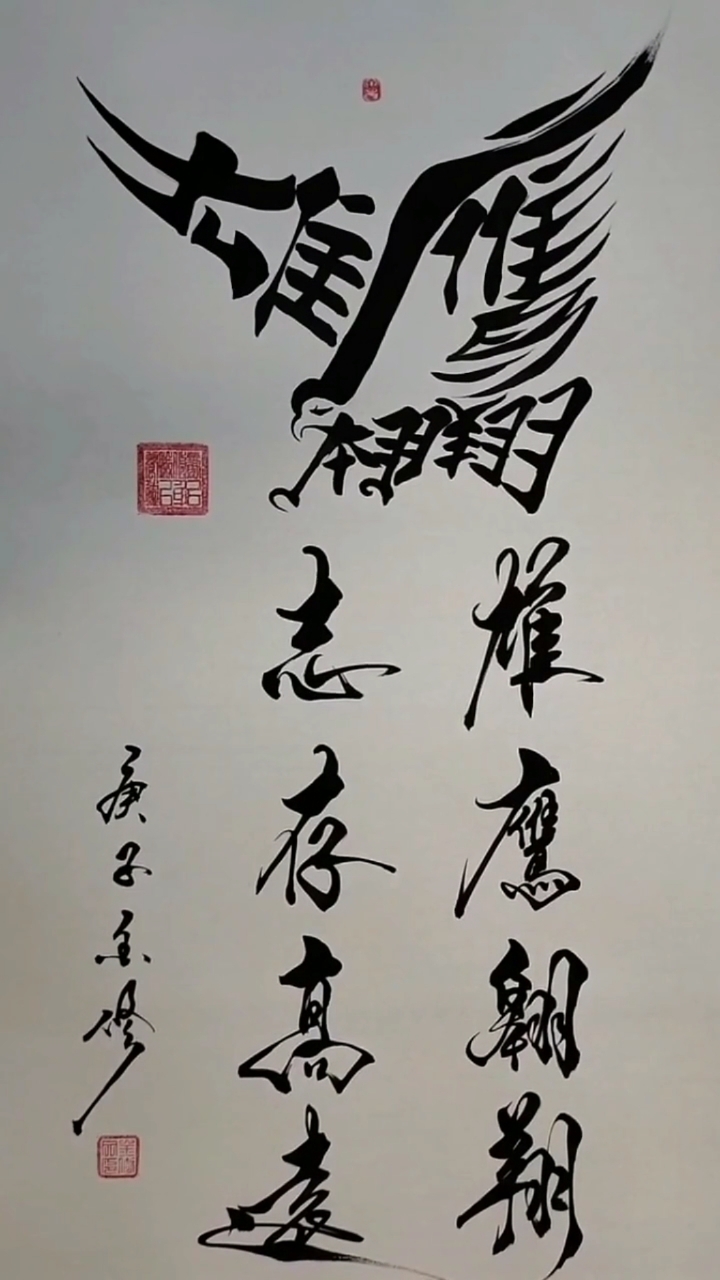 雄鹰翱翔
雄鹰翱翔
志存高遠
庚子